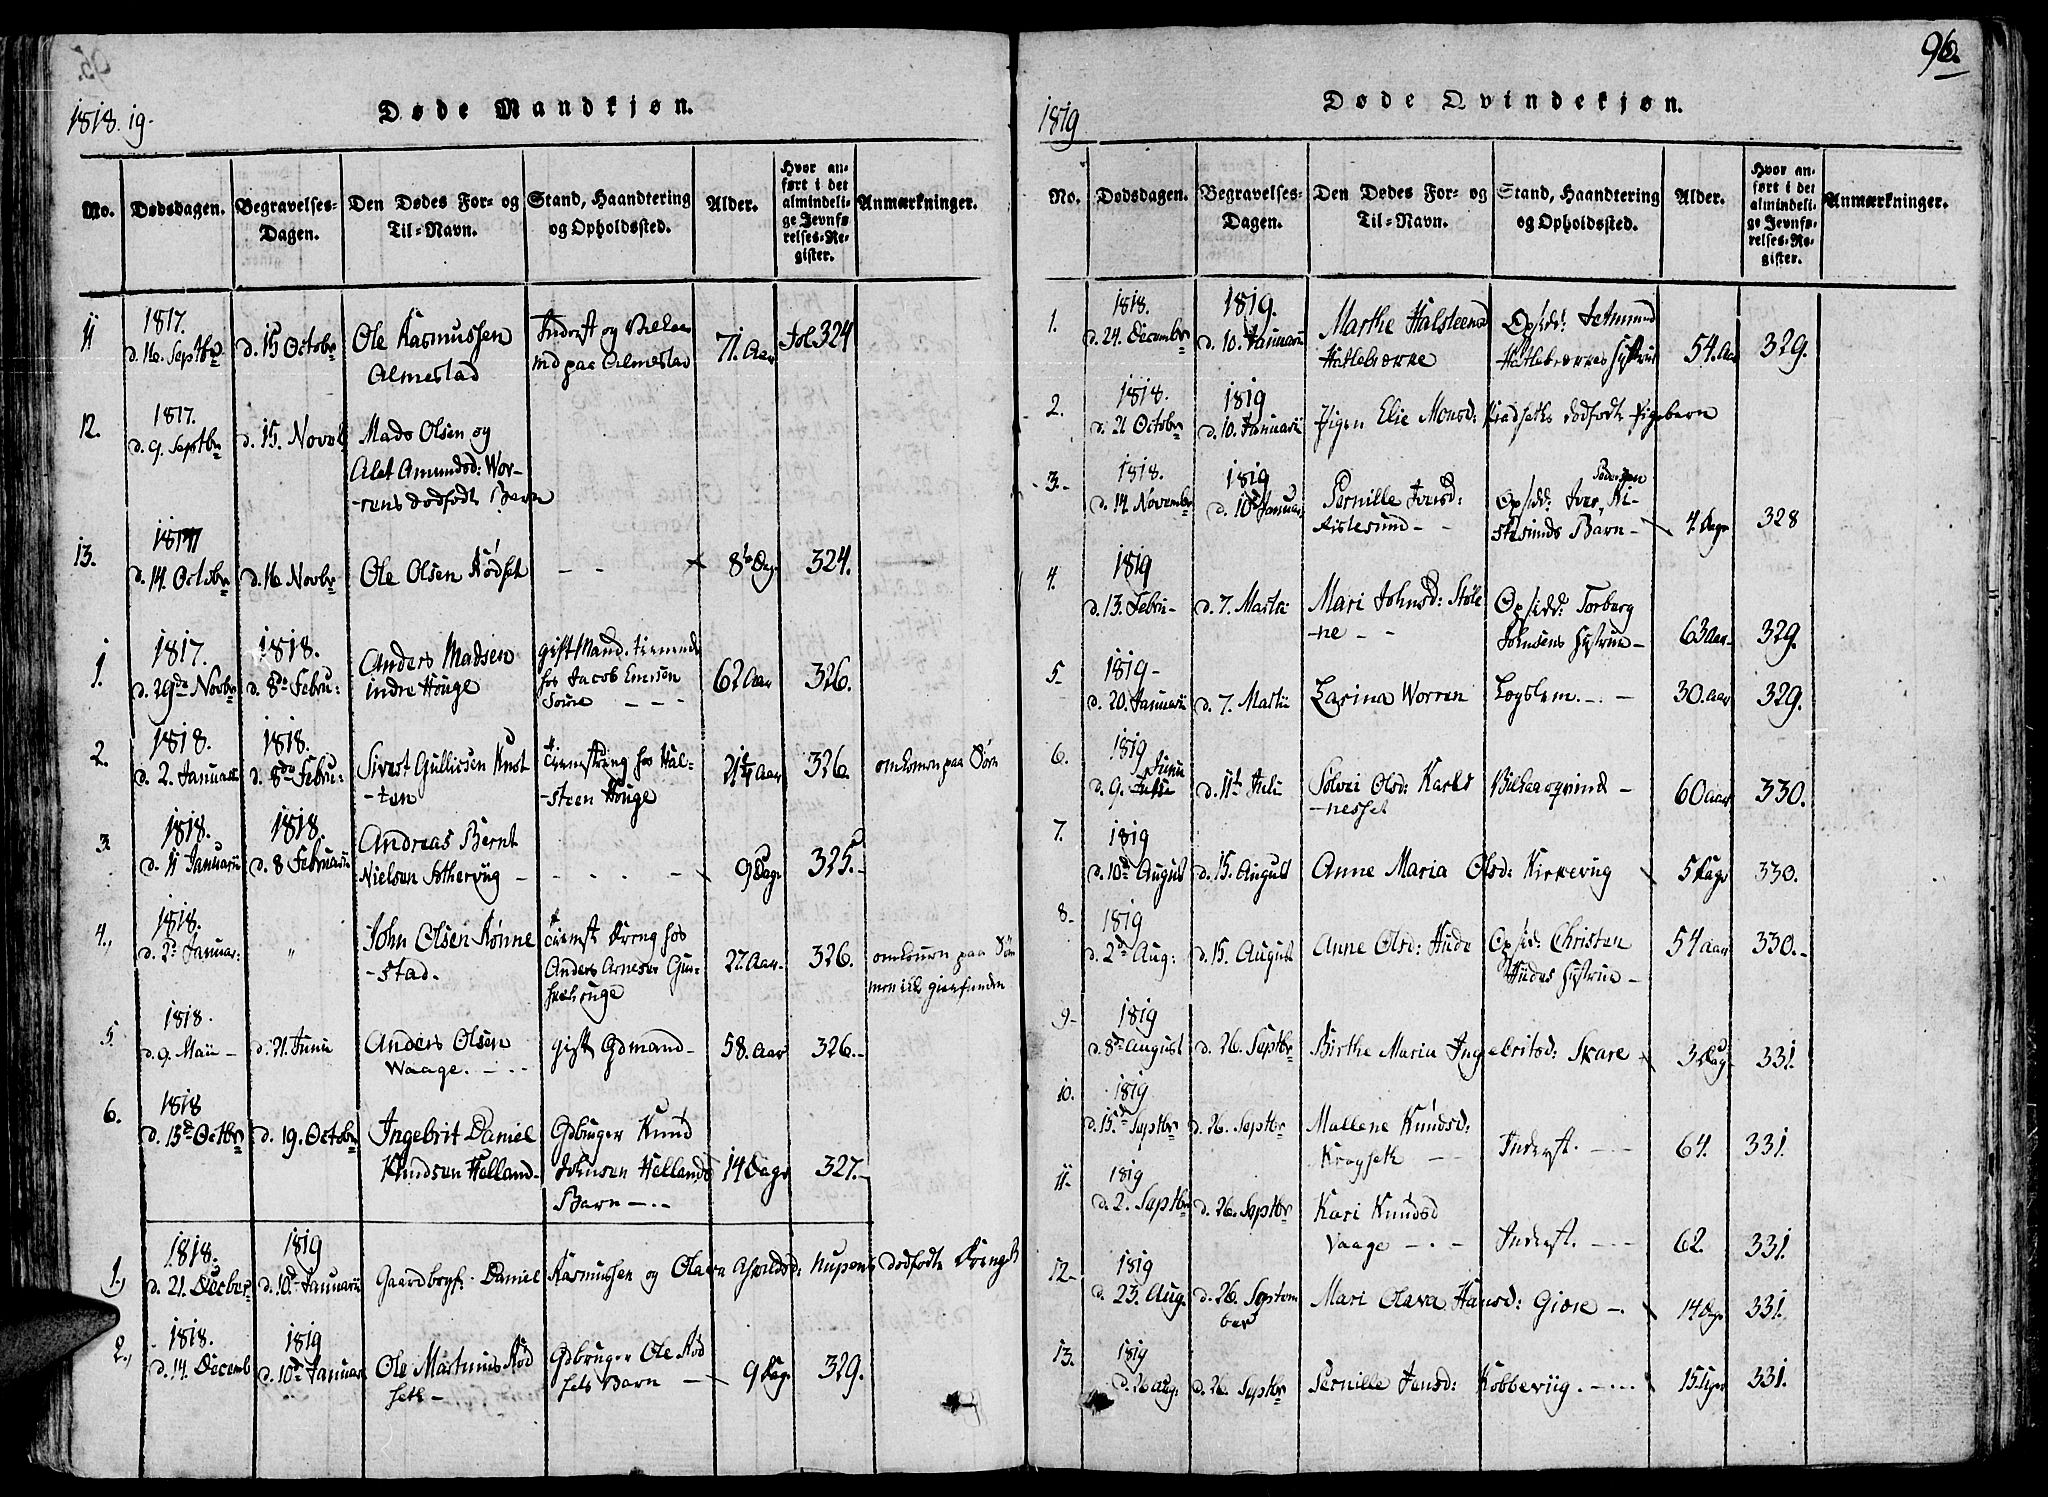 1818. 19.
Døde Mandkjøn.
No.
Dødsdagen.
Begravelses-Dagen.
Den Dødes For- og Til-Navn.
Stand, Haandtering og Opholdssted.
Alder.
Hvor anført i det almindelige Jevnførelses-Register.
Anmærkninger.
11 1817. d. 16. Septbr d. 15 Octobr Ole Rasmussen Almestad paa Almestad 71. Aar Fol 324
12. 1817. d. 9. Septbr d. 15. Novbr Mads Olsen og Alet Amundsd: Worrens dødfødte Barn
13. 1817 d. 14. Octobr d. 16 Novbr Ole Olsen Rødset - - 8te Dg. 324.
1. 1817. d. 29de Novbr 1818. d. 8de Febru: Anders Madsen indre Houge gift Mand tienende hos Jacob - - - 62 Aar 326.
2. 1818. d. 2. Januar 1818. d. 8de Febru: Sivert Gullicsen Knotten Tienistdreng hos Halsteen Houge 21 Aar 326. omkomen paa Søen
3. 1818. d. 11 Januarii 1818. d. 8 Februarii Andreas Bernt Nielsen - - - - 9 Dage 325.-
4. 1818. d. 2d Januar: " John Olsen Rønnestad. Tienist Dreng hos Anders Arnesen 27. Aar 326. omkomen paa Søen men ikke gienfunden
5. 1818. d. 9. Maii - d. 21. Junii Anders Olsen Waage. - - - gift Gdmand - 58. Aar 326.-
6. 1818 d. 13d Octbr d. 19. Octobr Ingebrit Daniel Knudsen Helland - Gdbruger Knud Johnsen Hellands Barn - - - 14 Dage 327.-
1. 1818. d. 21. Decbr 1819 d. 10d Januarii Gaardbrgr. Daniel Rasmussen og Olava dødfødte Dreng B
2. 1818. d. 14. Decemb 1819 d. 10d Januar Ole Martinus Rødseth - Gdbruger Ole Rødsets Barn - 9 Dag. 329.
96.
1819
Døde Qvindekjøn.
No.
Dødsdagen.
Begravelses-Dagen.
Den Dødes For- og Til-Navn.
Stand, Haandtering og Opholdssted.
Alder.
Hvor anført i det almindelige Jevnførelses-Register.
Anmærkninger.
1. 1818. d. 24. Decembr 1819. d. 10. Januarii Marthe Halsteensd Opsidd: 54. Aar 329.
2. 1818. d. 21 Octobr 1819 d. 10. Januarii Pigen Elie Monsd: dødfødte Pigebarn
3. 1818. d. 14. Novembr 1819 d. 10d Januar Pernille Iversd: - - Opsidd: Iver Barn - 4. Dage 328
4. 1819 d. 13. Febru - d. 7. Martii Mari Johnsd: Støle-ne - - Opsidd: Torberg Johnsens Hystrue - 63 Aar 329.
5. 1819 - d. 20. Januarii d. 7. Martii Worren Logslem. - - 30. Aar 329.
6. 1819 d. 9. Junii d. 11te Julii Solvei Olsd: 60 Aar 330.
7. 1819 d. 10d August d. 15. August Anne Maria Olsd: Kirkevug 5 Dage 330.
8. 1819 d. 2d Aug: d. 15. August Anne Olsd: Hude Opsid: Christen Hudes Hystrue - 54 Aar 330.-
9. 1819 d. 8d August d. 26. Septbr Birthe Maria Ingebritsd: Skare - 3 Dag. 331.
10. 1819 d. 15.d Septbr d. 26. Septbr Mallene Knudsd: Kragseth - - Inderst. - - 64. 331.
11. 1819 d. 2. Septbr d. 26. Septbr Kari Knudsd Vaage - - - Inderst. - - 62. 331.
12. 1819 d. 23. Aug. d. 26. Septem ber Mari Olava Hansd: Giøre - . 14 Dge 331.
13. 1819 d. 26 Aug: d. 26. Septbr Pernille Jensd: Kobbevug. - - - 15. 331.